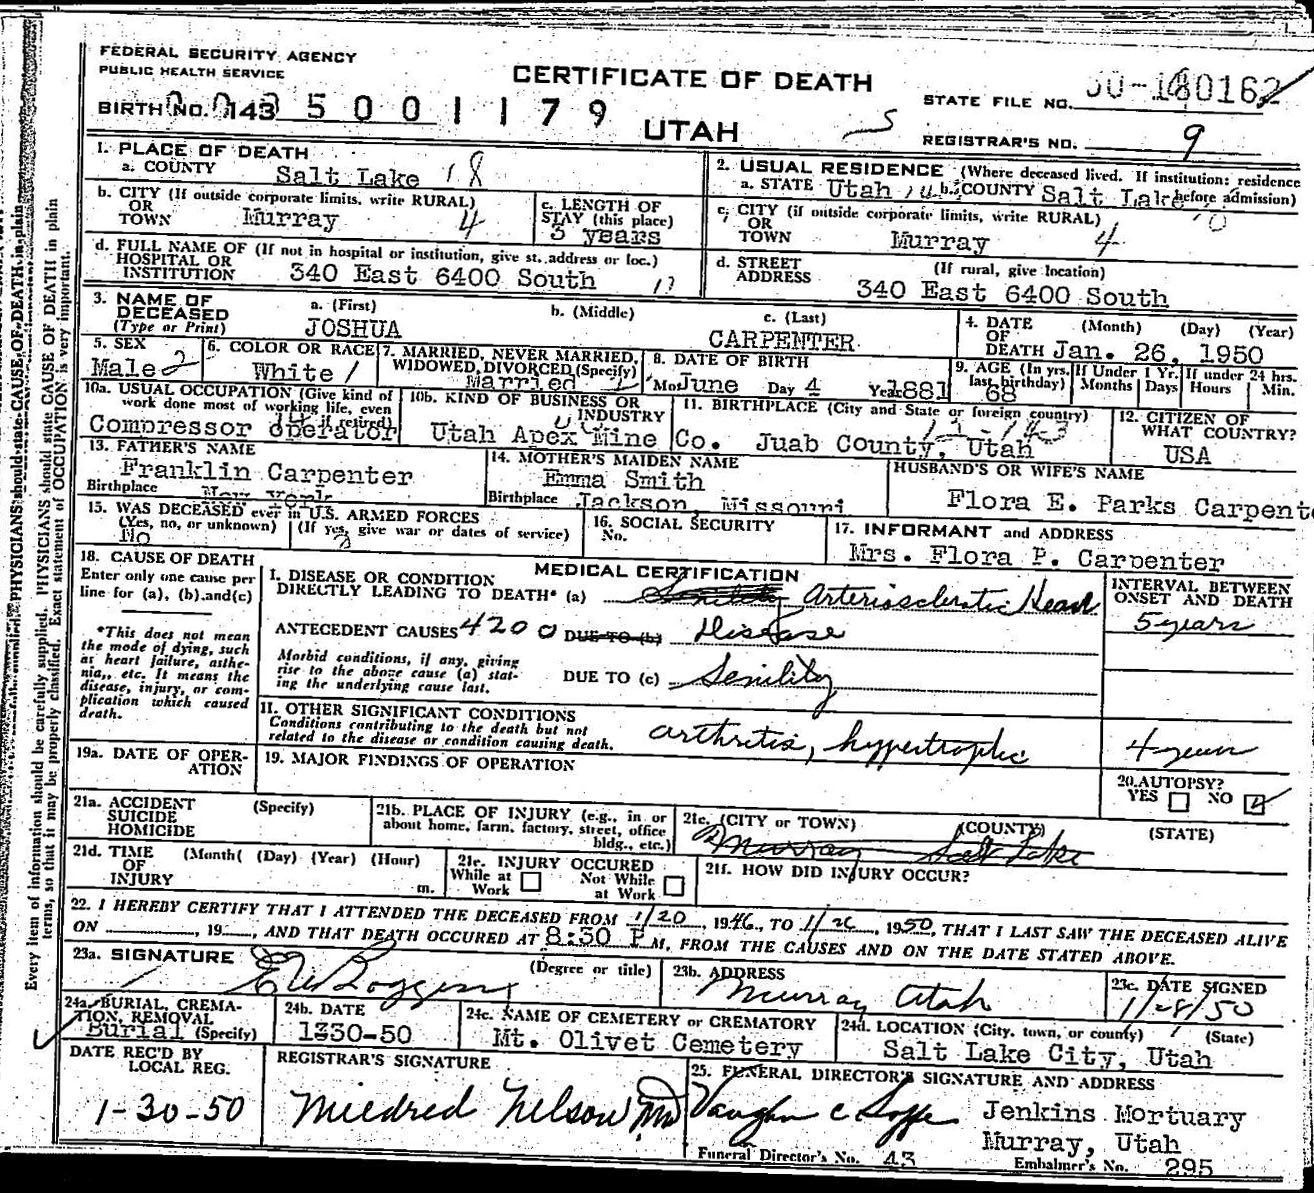 FEDERAL SECURITY AGENCY
PUBLIC HEALTH SERVICE
CERTIFICATE OF DEATH
UTAH
BIRTH NO. 143 5 0 0 1 1 7 9
STATE FILE NO.
REGISTRAR'S NO. 9
1. PLACE OF DEATH
a. COUNTY Salt Lake 18
2. USUAL RESIDENCE (Where deceased lived. If institution: residence before admission)
a. STATE Utah b. COUNTY Salt Lake
b. CITY (If outside corporate limits, write RURAL) OR TOWN Murray 4
c. LENGTH OF STAY (this place) 3 years
c. CITY (if outside corporate limits, write RURAL) OR TOWN Murray 4
d. FULL NAME OF HOSPITAL OR INSTITUTION (If not in hospital or institution, give st. address or loc.)
340 East 6400 South
d. STREET ADDRESS (If rural, give location)
340 East 6400 South
3. NAME OF DECEASED (Type or Print)
a. (First) b. (Middle) c. (Last)
JOSHUA CARPENTER
4. DATE OF DEATH (Month) (Day) (Year)
Jan. 26, 1950
5. SEX Male 2
6. COLOR OR RACE White 1
7. MARRIED, NEVER MARRIED, WIDOWED, DIVORCED (Specify) Married
8. DATE OF BIRTH
Mo. June Day 4 Year 1881
9. AGE (In yrs. last birthday) 68
If Under 1 Yr. Months Days
If under 24 hrs. Hours Min.
10a. USUAL OCCUPATION (Give kind of work done most of working life, even if retired)
Compressor operator
10b. KIND OF BUSINESS OR INDUSTRY
Utah Apex Mine Co.
11. BIRTHPLACE (City and State or foreign country)
Juab County, Utah
12. CITIZEN OF WHAT COUNTRY?
USA
13. FATHER'S NAME
Franklin Carpenter
Birthplace New York
14. MOTHER'S MAIDEN NAME
Emma Smith
Birthplace Jackson, Missouri
HUSBAND'S OR WIFE'S NAME
Flora E. Parks Carpent
15. WAS DECEASED ever in U.S. ARMED FORCES
(Yes, no, or unknown) (If yes, give war or dates of service)
No
16. SOCIAL SECURITY No.
17. INFORMANT and ADDRESS
Mrs. Flora P. Carpenter
18. CAUSE OF DEATH
Enter only one cause per line for (a), (b), and (c)
*This does not mean the mode of dying, such as heart failure, asthenia, etc. It means the disease, injury, or complication which caused death.
MEDICAL CERTIFICATION
I. DISEASE OR CONDITION DIRECTLY LEADING TO DEATH* (a) Senility Arteriosclerotic Heart
ANTECEDENT CAUSES 4200 DUE TO (b) Disease
Morbid conditions, if any, giving rise to the above cause (a) stating the underlying cause last.
DUE TO (c) Senility
INTERVAL BETWEEN ONSET AND DEATH
5 years
II. OTHER SIGNIFICANT CONDITIONS
Conditions contributing to the death but not related to the disease or condition causing death.
arthritis, hypertrophic
4 years
19a. DATE OF OPERATION
19. MAJOR FINDINGS OF OPERATION
20. AUTOPSY?
YES NO
21a. ACCIDENT SUICIDE HOMICIDE (Specify)
21b. PLACE OF INJURY (e.g., in or about home, farm, factory, street, office bldg., etc.)
21c. (CITY or TOWN) (COUNTY) (STATE)
Murray Salt Lake
21d. TIME OF INJURY (Month( (Day) (Year) (Hour) m.
21e. INJURY OCCURED
While at Work Not While at Work
21f. HOW DID INJURY OCCUR?
22. I HEREBY CERTIFY THAT I ATTENDED THE DECEASED FROM 1/20, 1946, TO 1/26, 1950, THAT I LAST SAW THE DECEASED ALIVE
ON , 19 , AND THAT DEATH OCCURED AT 8:30 P M, FROM THE CAUSES AND ON THE DATE STATED ABOVE.
23a. SIGNATURE (Degree or title)
23b. ADDRESS
Murray Utah
23c. DATE SIGNED
1/28/50
24a. BURIAL, CREMATION, REMOVAL (Specify)
Burial
24b. DATE
1330-50
24c. NAME OF CEMETERY or CREMATORY
Mt. Olivet Cemetery
24d. LOCATION (City, town, or county) (State)
Salt Lake City, Utah
DATE REC'D BY LOCAL REG.
1-30-50
REGISTRAR'S SIGNATURE
Mildred Nelson MD
25. FUNERAL DIRECTOR'S SIGNATURE AND ADDRESS
Vaughn C
Jenkins Mortuary
Murray, Utah
Funeral Director's No. 43
Embalmer's No. 295
Every item of information should be carefully supplied. PHYSICIANS should state CAUSE OF DEATH in plain
terms, so that it may be properly classified. Exact statement of OCCUPATION is very important.